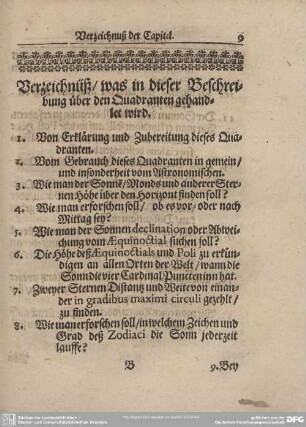 Verzeichnuß der Capitel. 9
Verzeichnüß/ was in dieser Beschrei-
bung über den Quadranten gehand-
let wird.
1. Von Erklärung und Zubereitung dieses Qua-
dranten.
2. Vom Gebrauch dieses Quadranten in gemein/
und insonderheit vom Astronomischen.
3. Wie man der Sonne/ Monds und anderer Ster-
nen Höhe über den Horizont finden soll?
4. Wie man erforschen soll/ ob es vor/ oder nach
Mittag sey?
5. Wie man der Sonnen declination oder Abwei-
chung vom Æquinoctial suchen soll?
6. Die Höhe deß Æquinoctials und Poli zu erkün-
digen an allen Orten der Welt/ wann die
Sonn die vier Cardinal Puncten inn hat.
7. Zweyer Sternen Distantz und Weite von einan-
der in gradibus maximi circuli gezehlt/
zu finden.
8. Wie man erforschen soll/ in welchem Zeichen und
Grad deß Zodiaci die Sonn jederzeit
lauffe?
B 9. Bey